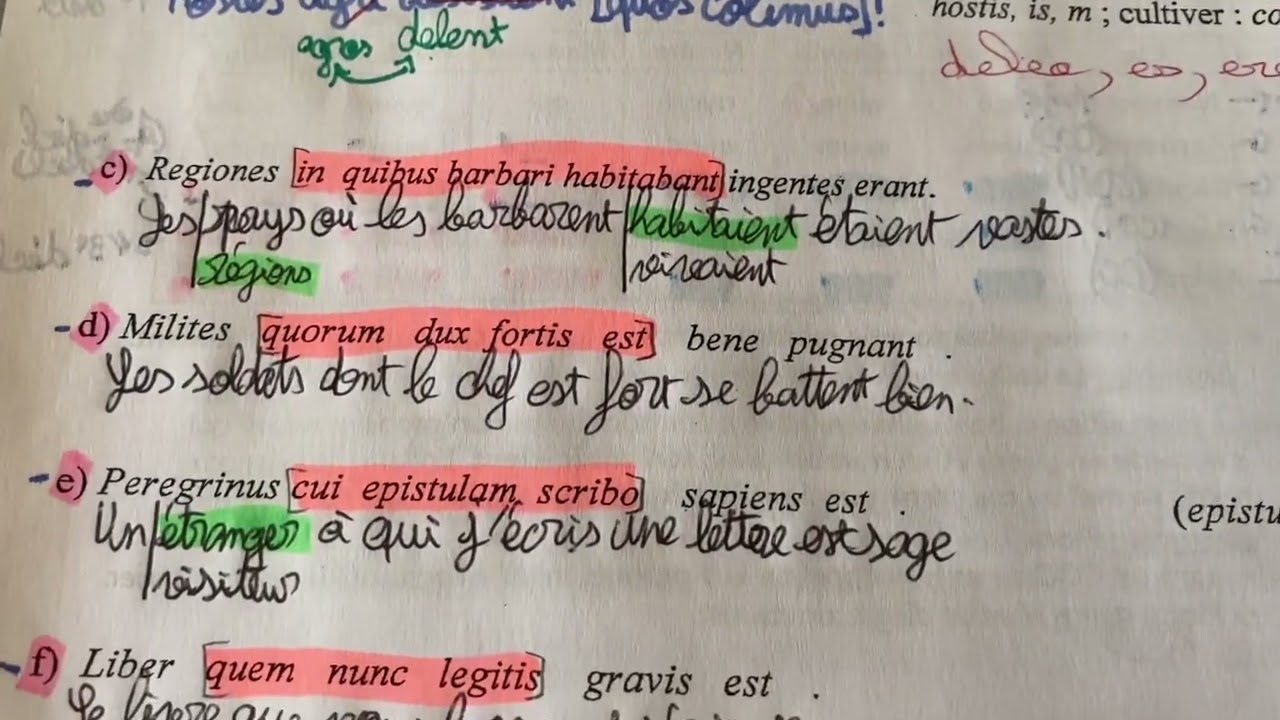 [quos colimus]!
hostis, is, m ; cultiver : co
agros delent
deleo, es, ere
c) Regiones [in quibus barbari habitabant] ingentes erant.
Les pays où les barbarent habitaient étaient vastes.
régions vivaient
- d) Milites [quorum dux fortis est] bene pugnant .
Les soldats dont le chef est fort se battent bien.
- e) Peregrinus [cui epistulam scribo] sapiens est .
(epistu
Un étranger à qui j'écris une lettre est sage
visiteur
- f) Liber [quem nunc legitis] gravis est .